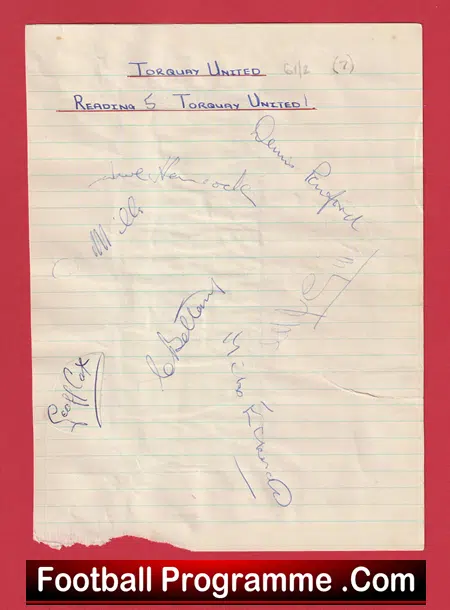 TORQUAY UNITED 61/2 (7)
READING 5 TORQUAY UNITED 1
Dennis Penford
Hancock
Mills
C Bettany
Geoff Cox
Football Programme .Com